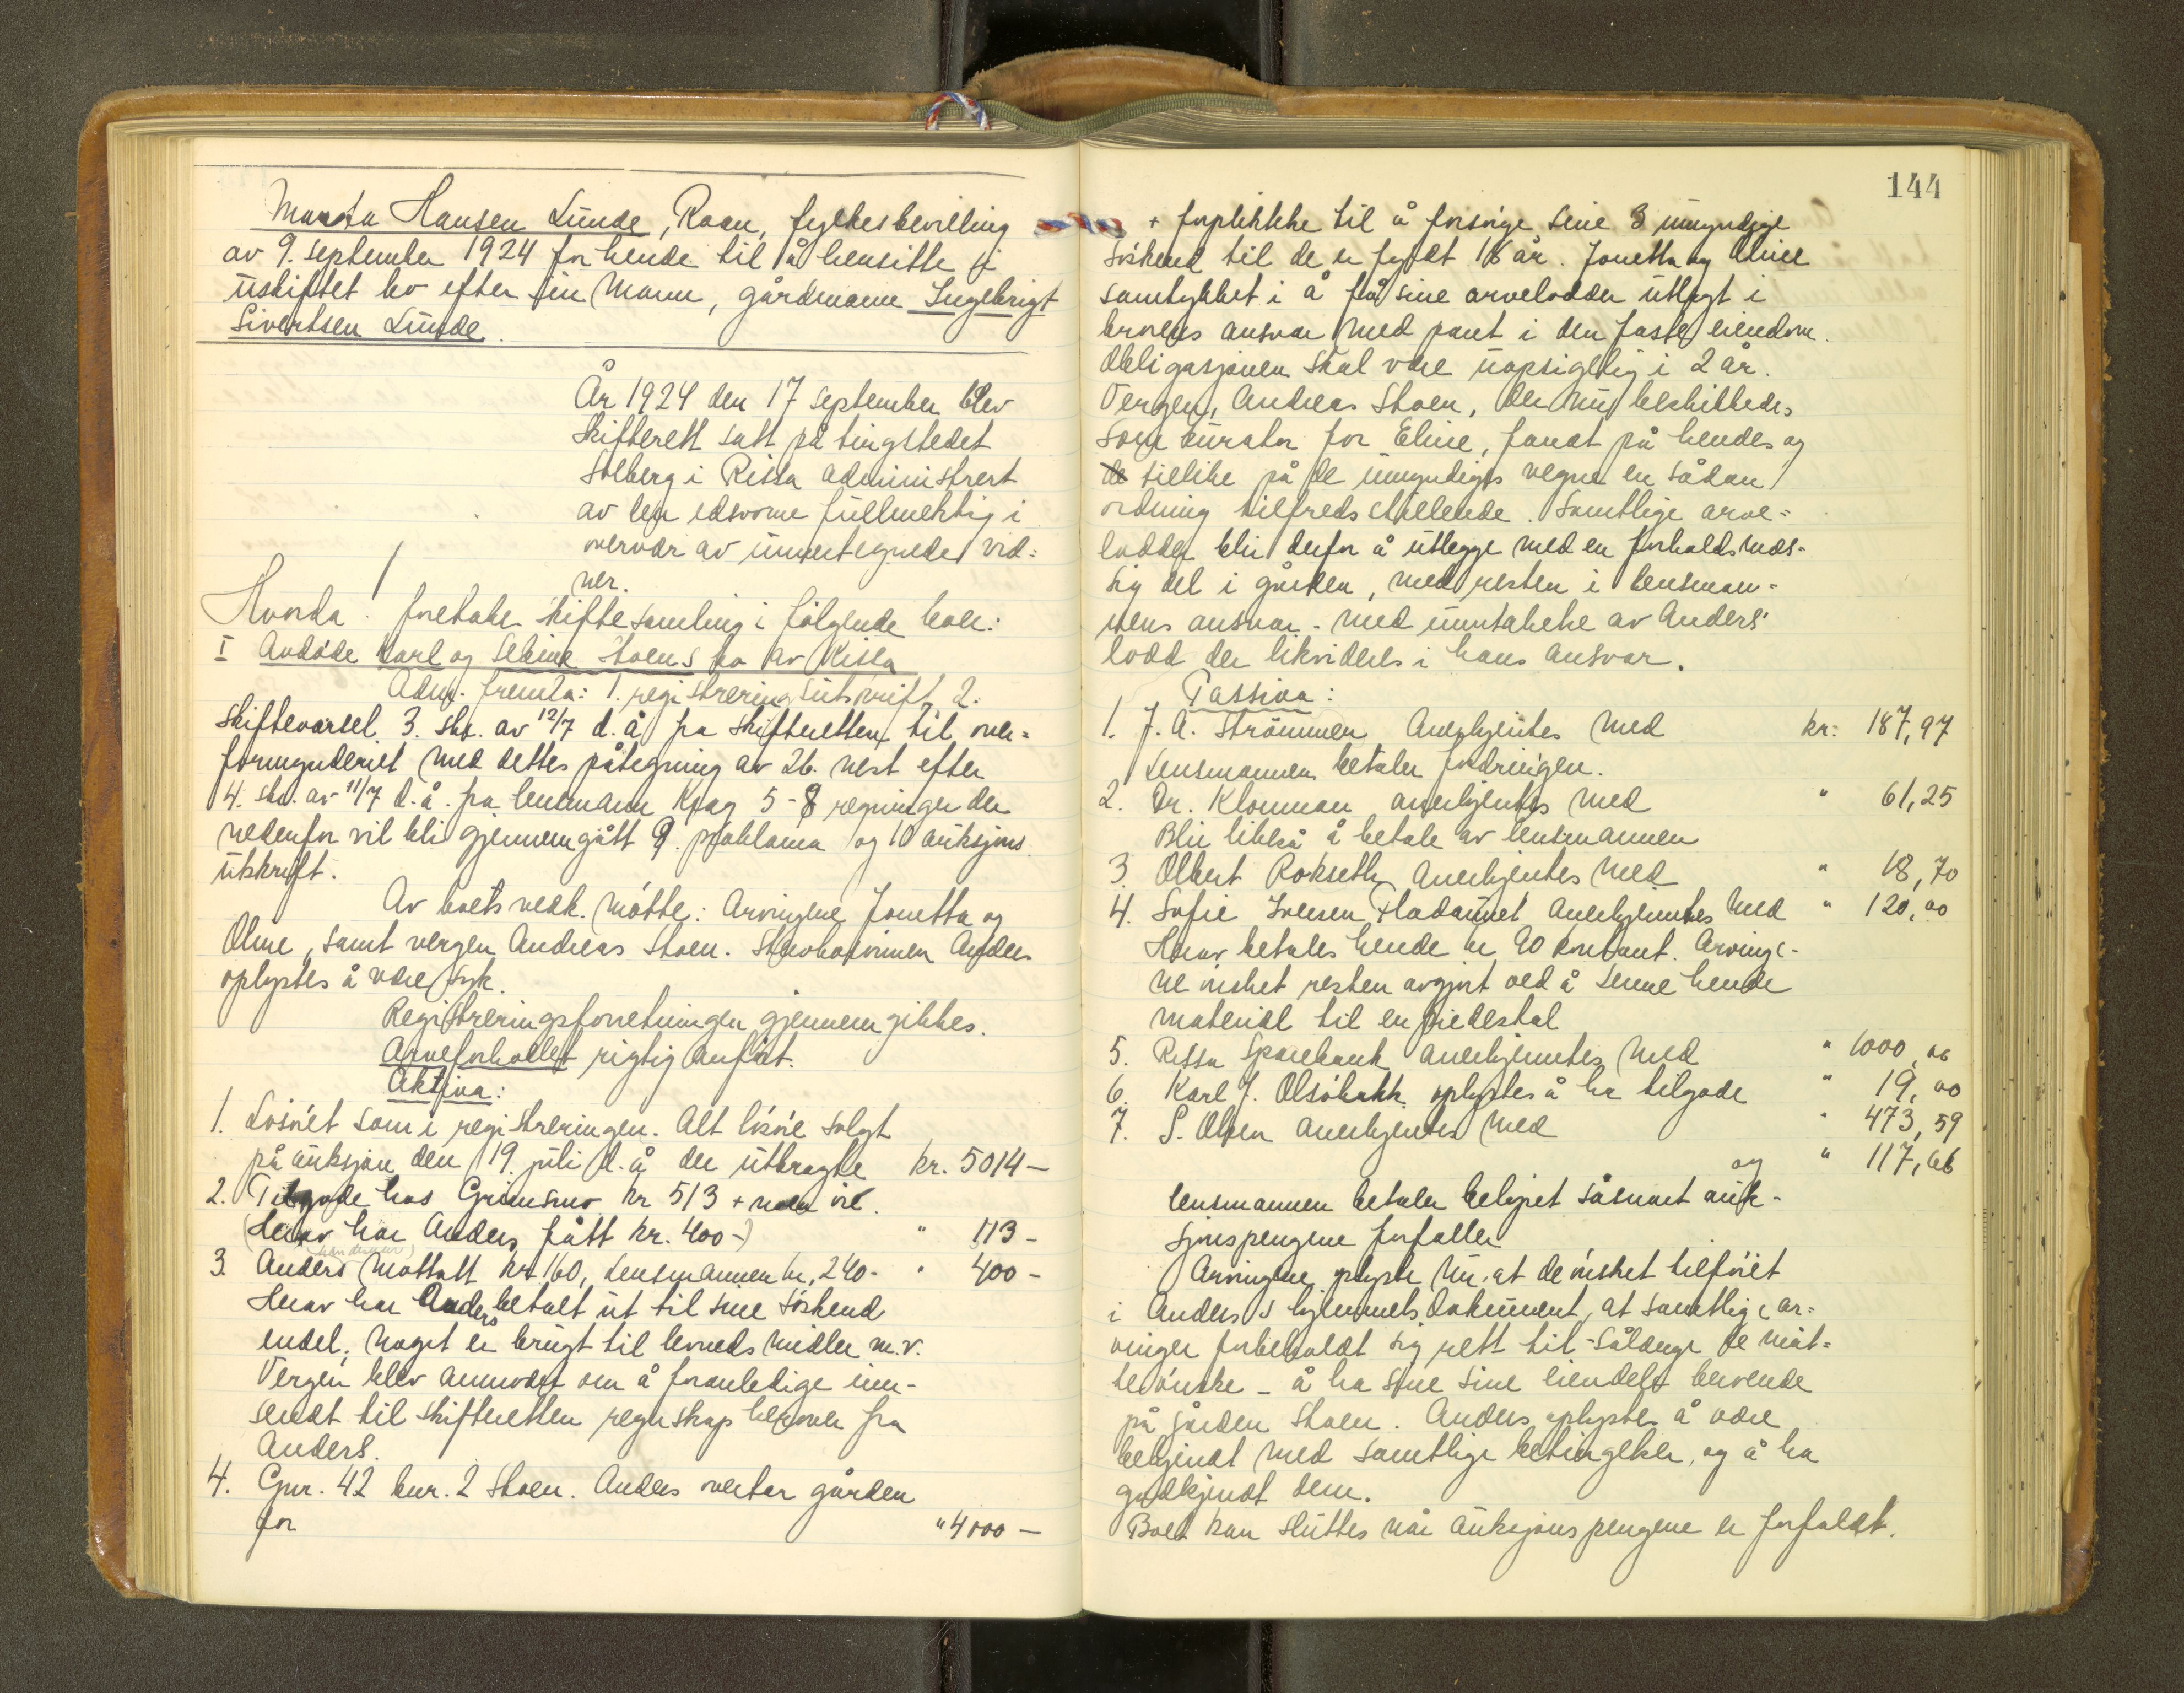 Marta Hansen Lunde, Roan, fylkesbevilling
av 9. september 1924 for hende til å hensitte i
uskiftet bo efter sin mann, gårdmann Ingebrigt
Sivertsen Lunde.
År 1924 den 17 september blev
skifterett satt på tingstedet
Solberg i Rissa administrert
av den edsvorne fullmektig i
overvær av undertegnede vid-
ner.
Hvorda! foretokes skiftesamling i følgende boer:
I Avdøde Karl og Stoens bo av Rissa
Adm. fremla: 1. registreringsutskrift, 2.
skiftevarsel 3. skr. av 12/7 d.å. fra skifteretten til over-
formynderiet med dettes påtegning av 26. nest efter
4. skr. av 11/7 d.å. fra lensmann Krag 5-8 regninger der
nedenfor vil bli gjennemgått 9. proklama og 10 auksjons
utskrift.
Av boets vedk. møtte: Arvingene Jonetta og
Oline, samt vergen Andreas Stoen. Anders
oplystes å være syk.
Registreringsforretningen gjennemgikkes.
Arveforholdet rigtig anført.
Aktiva:
1. Løsøret som i registreringen. Alt løsøre solgt
på auksjon den 19. juli d.å. der utbragte kr. 5014 —
2. Tilgode hos Grimsmo kr 513 + noen øre.
(Herav har Anders fått kr. 400 -) " 113 -
3. Anders mottatt kr 160, Lensmannen kr. 240 - " 400 -
Herav har Anders betalt ut til sine søskend
endel, noget er brugt til levnedsmidler m.v.
Vergen blev anmodet om å foranledige inn-
sendt til skifteretten regnskap herover fra
Anders.
4. Gnr. 42 bnr. 2 Stoen. Anders overtar gården
for " 4000 —
144
+ forpliktelse til å forsørge sine 3 umyndige
søskend til de er fyldt 16 år. Jonetta og Oline
samtykket i å få sine arvelodder utlagt i
brorens ansvar med pant i den faste eiendom.
Obligasjonen skal være uopsigelig i 2 år.
Vergen, Andreas Stoen, der nu beskikkedes
som kurator for Eline, fandt på hendes og
de tillike på de umyndiges vegne en sådan
ordning tilfredsstillende. Samtlige arve-
lodder blir derfor å utlegge med en forholdsmæs-
sig del i gården, med resten i lensman-
nens ansvar - med unntakelse av Anders'
lodd der likvideres i hans ansvar.
Passiva:
1. J. A. Strømmen anerkjentes med kr: 187,97
Lensmannen betaler fordringen.
2. Dr. Klouman anerkjentes med " 61,25
Blir likeså å betale av lensmannen
3. Olbert Rokseth anerkjentes med " 18,70
4. Sofie Iversen Fladaunet anerkjentes med " 120,00
Herav betales hende kr 90 kontant. Arvinge-
ne ønsket resten avgjort ved å levne hende
material til en piedestal
5. Rissa Sparebank anerkjentes med " 1000,00
6. Karl J. Olsøbakk oplystes å ha tilgode " 19,00
7. S. Olsen anerkjentes med " 473,59
og " 117,66
lensmannen betaler beløpet såsnart auk-
sjonspengene forfaller
Arvingene oplyste nu, at de ønsket tilføiet
i Anders's hjemmels dokument, at samtlige ar-
vinger forbeholdt sig rett til - sålænge de måt-
te ønske - å ha sine eiendeler beroende
på gården Stoen. Anders oplystes å være
bekjendt med samtlige betingelser, og å ha
godkjendt dem.
Boet kan sluttes når auksjonspengene er forfaldt.